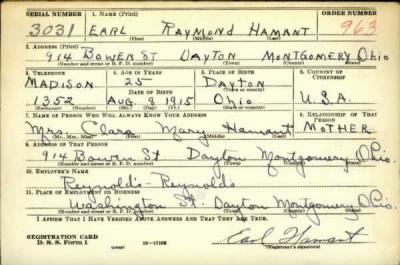 SERIAL NUMBER 1. NAME (Print) ORDER NUMBER
3031 EARL RAYMOND HAMANT 963
(First) (Middle) (Last)
2. ADDRESS (Print)
914 BOWEN ST DAYTON MONTGOMERY Ohio
(Number and street or R. F. D. number) (Town) (County) (State)
3. TELEPHONE 4. AGE IN YEARS 5. PLACE OF BIRTH 6. COUNTRY OF CITIZENSHIP
MADISON 25 DAYTON
DATE OF BIRTH (Town or county)
1352 AUG 8 1915 Ohio U.S.A.
(Exchange) (Number) (Mo.) (Day) (Yr.) (State or country)
7. NAME OF PERSON WHO WILL ALWAYS KNOW YOUR ADDRESS 8. RELATIONSHIP OF THAT PERSON
Mrs. Clara Mary Hamant MOTHER
(Mr., Mrs., Miss) (First) (Middle) (Last)
9. ADDRESS OF THAT PERSON
914 Bowen St Dayton Montgomery Ohio.
(Number and street or R. F. D. number) (Town) (County) (State)
10. EMPLOYER'S NAME
Reynolds-Reynolds
11. PLACE OF EMPLOYMENT OR BUSINESS
Washington St. Dayton Montgomery Ohio.
(Number and street or R. F. D. number) (Town) (County) (State)
I AFFIRM THAT I HAVE VERIFIED ABOVE ANSWERS AND THAT THEY ARE TRUE.
REGISTRATION CARD
D. S. S. Form 1 (over) 16—17105 Earl Hamant
(Registrant's signature)